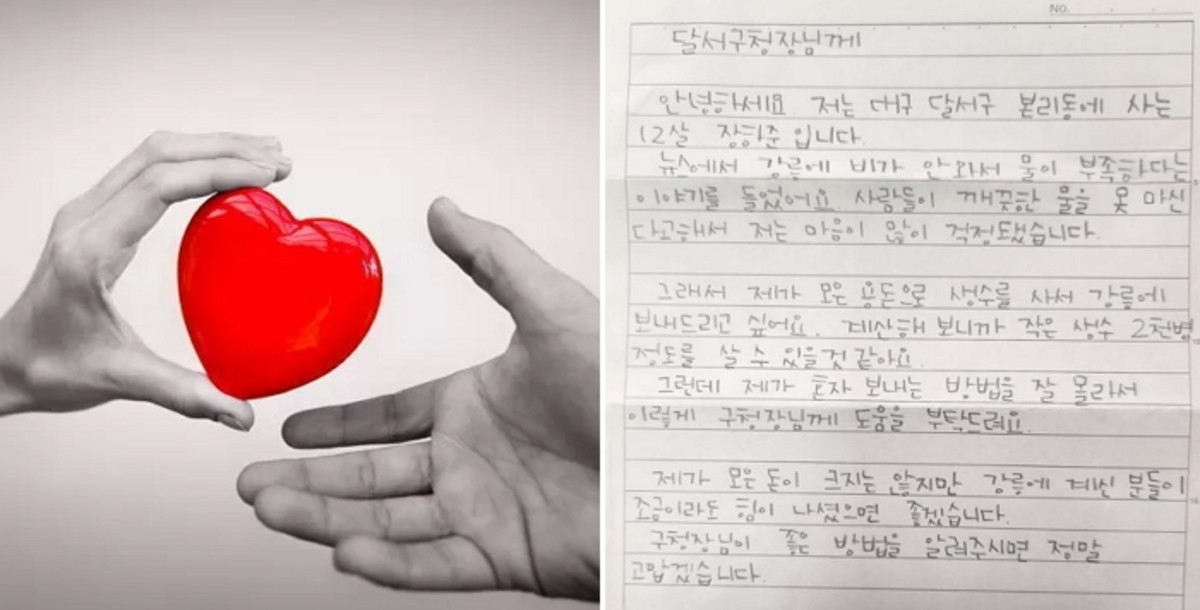 NO.
달서구청장님께
안녕하세요. 저는 대구 달서구 본리동에 사는
12살 장하준입니다.
뉴스에서 강릉에 비가 안와서 물이 부족하다는
이야기를 들었어요. 사람들이 깨끗한 물을 못 마신
다고해서 저는 마음이 많이 걱정됐습니다.
그래서 제가 모은 용돈으로 생수를 사서 강릉에
보내드리고 싶어요. 계산해 보니까 작은 생수 2천병
정도를 살 수 있을것 같아요.
그런데 제가 혼자 보내는 방법을 잘 몰라서
이렇게 구청장님께 도움을 부탁드려요.
제가 모은 돈이 크지는 않지만 강릉에 계신 분들이
조금이라도 힘이 나셨으면 좋겠습니다.
구청장님이 좋은 방법을 알려주시면 정말
고맙겠습니다.